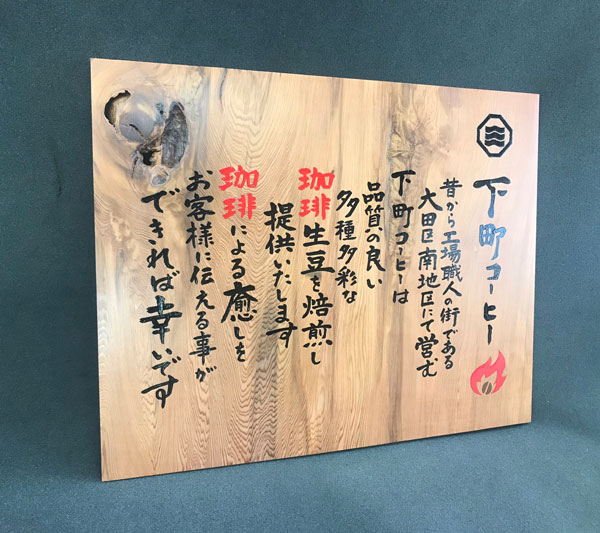 下町コーヒー
昔から工場職人の街である
大田区南地区にて営む
下町コーヒーは
品質の良い
多種多彩な
珈琲生豆を焙煎し
提供いたします
珈琲による癒しを
お客様に伝える事が
できれば幸いです